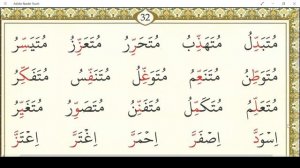 32
مُتَبَدِّلٌ مُتَهَذِّبٌ مُتَحَرِّرٌ مُتَعَزِّزٌ مُتَيَسِّرٌ
مُتَوَطِّنٌ مُتَنَعِّمٌ مُتَوَغِّلٌ مُتَنَفِّسٌ مُتَفَكِّرٌ
مُتَعَلِّمٌ مُتَكَمِّلٌ مُتَفَنِّنٌ مُتَصَوِّرٌ مُتَغَيِّرٌ
اِسْوَدَّ اِصْفَرَّ اِحْمَرَّ اِغْتَرَّ اِعْتَزَّ